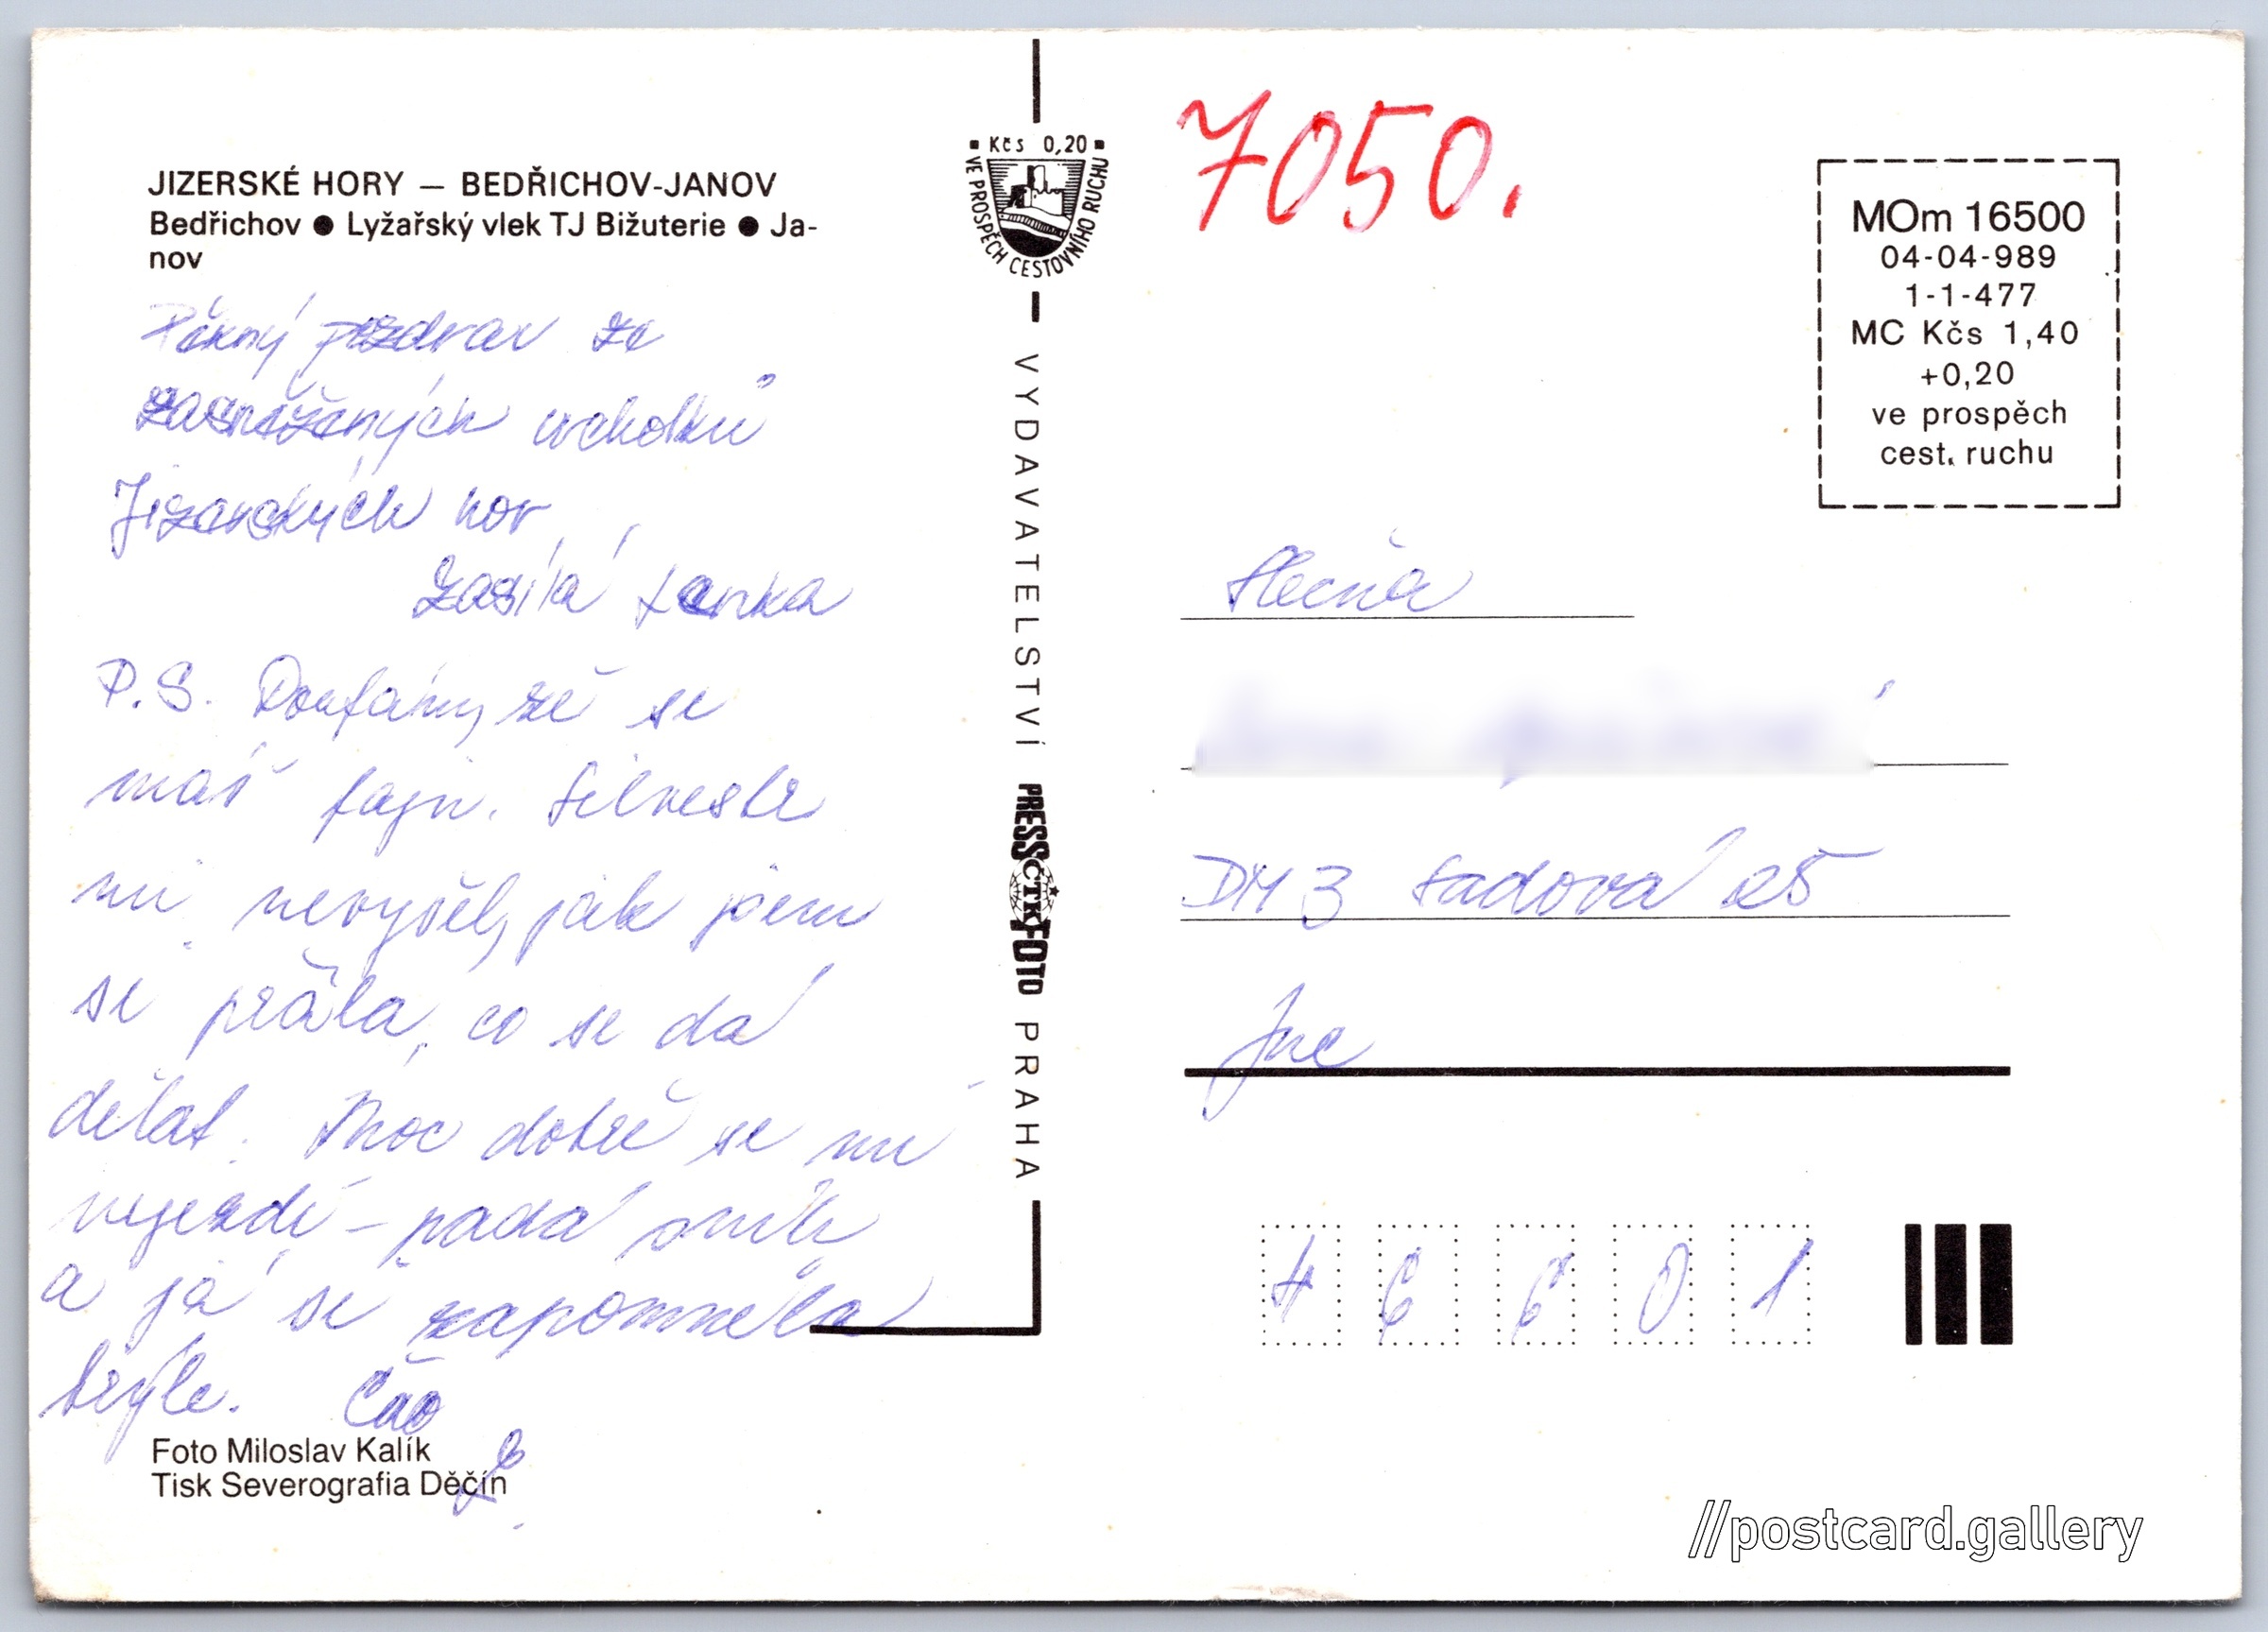 JIZERSKÉ HORY — BEDŘICHOV-JANOV
Bedřichov ● Lyžařský vlek TJ Bižuterie ● Ja-
nov
Pěkný pozdrav ze
zasněžených vrcholků
Jizerských hor
zasílá Lenka
P.S. Doufám, že se
máš fajn. Silvestr
mi nevyšel, jak jsem
si přála, co se dá
dělat. Moc dobře se mi
nejezdí - padá sníh
a já si zapomněla
brýle. Čao
Foto Miloslav Kalík
Tisk Severografia Děčín
Kčs 0,20
VE PROSPĚCH CESTOVNÍHO RUCHU
VYDAVATELSTVÍ PRESSFOTO PRAHA
ČTK
7050.
MOm 16500
04-04-989
1-1-477
MC Kčs 1,40
+0,20
ve prospěch
cest. ruchu
Slečna
DM 3 Sadová 25
Jnc
46601
//postcard.gallery